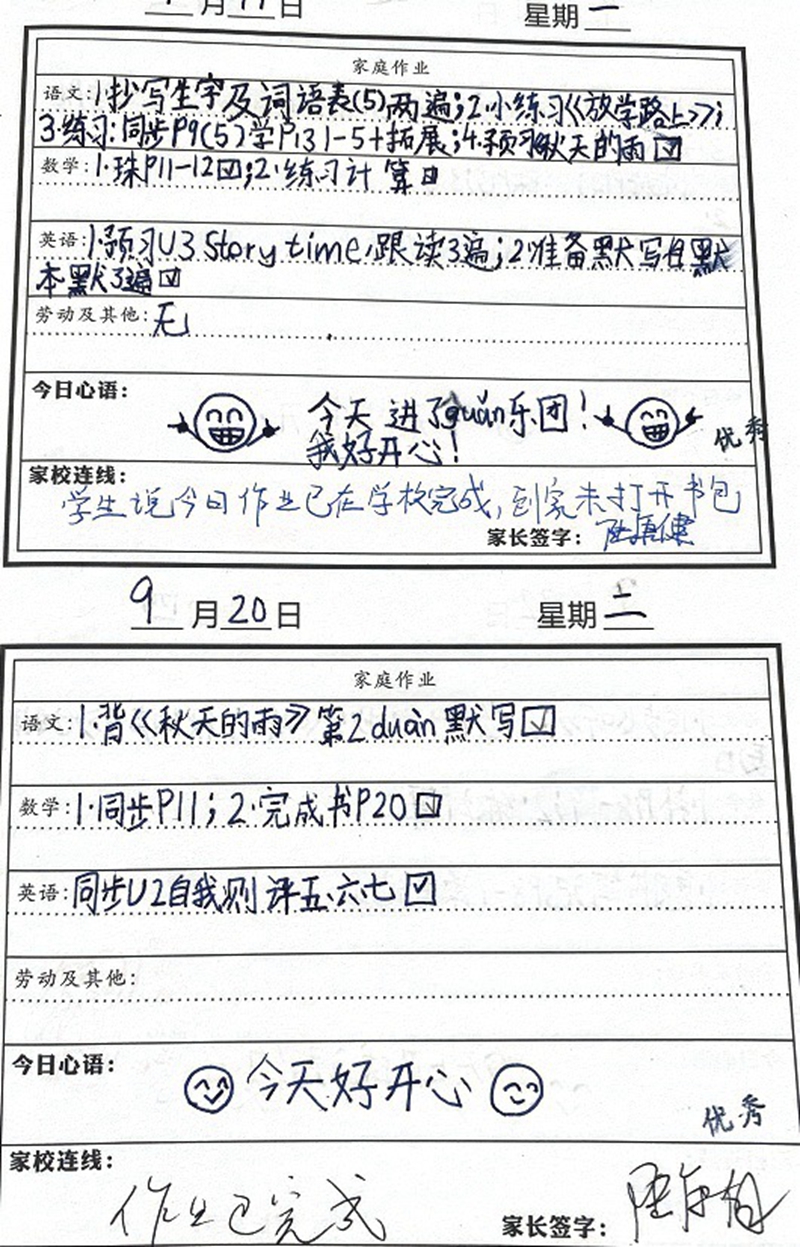 月 日 星期 一
家庭作业
语文:1.抄写生字及词语表(5)两遍;2.小练习《放学路上》;
3.练习:同步P9(5)学P131-5+拓展;4.预习秋天的雨☑
数学:1.珠P11-12☑;2.练习计算☑
英语:1.预习U3 Story time,跟读3遍;2.准备默写用默
本默3遍☑
劳动及其他:无
今日心语:
今天进了quán乐团!
我好开心!
优秀
家校连线:
学生说今日作业已在学校完成,到家未打开书包
家长签字:
9月20日 星期二
家庭作业
语文:1.背《秋天的雨》第2duàn默写☑
数学:1.同步P11;2.完成书P20☑
英语:同步U2自我测评五.六七☑
劳动及其他:
今日心语:
今天好开心
优秀
家校连线:
作业已完成
家长签字: